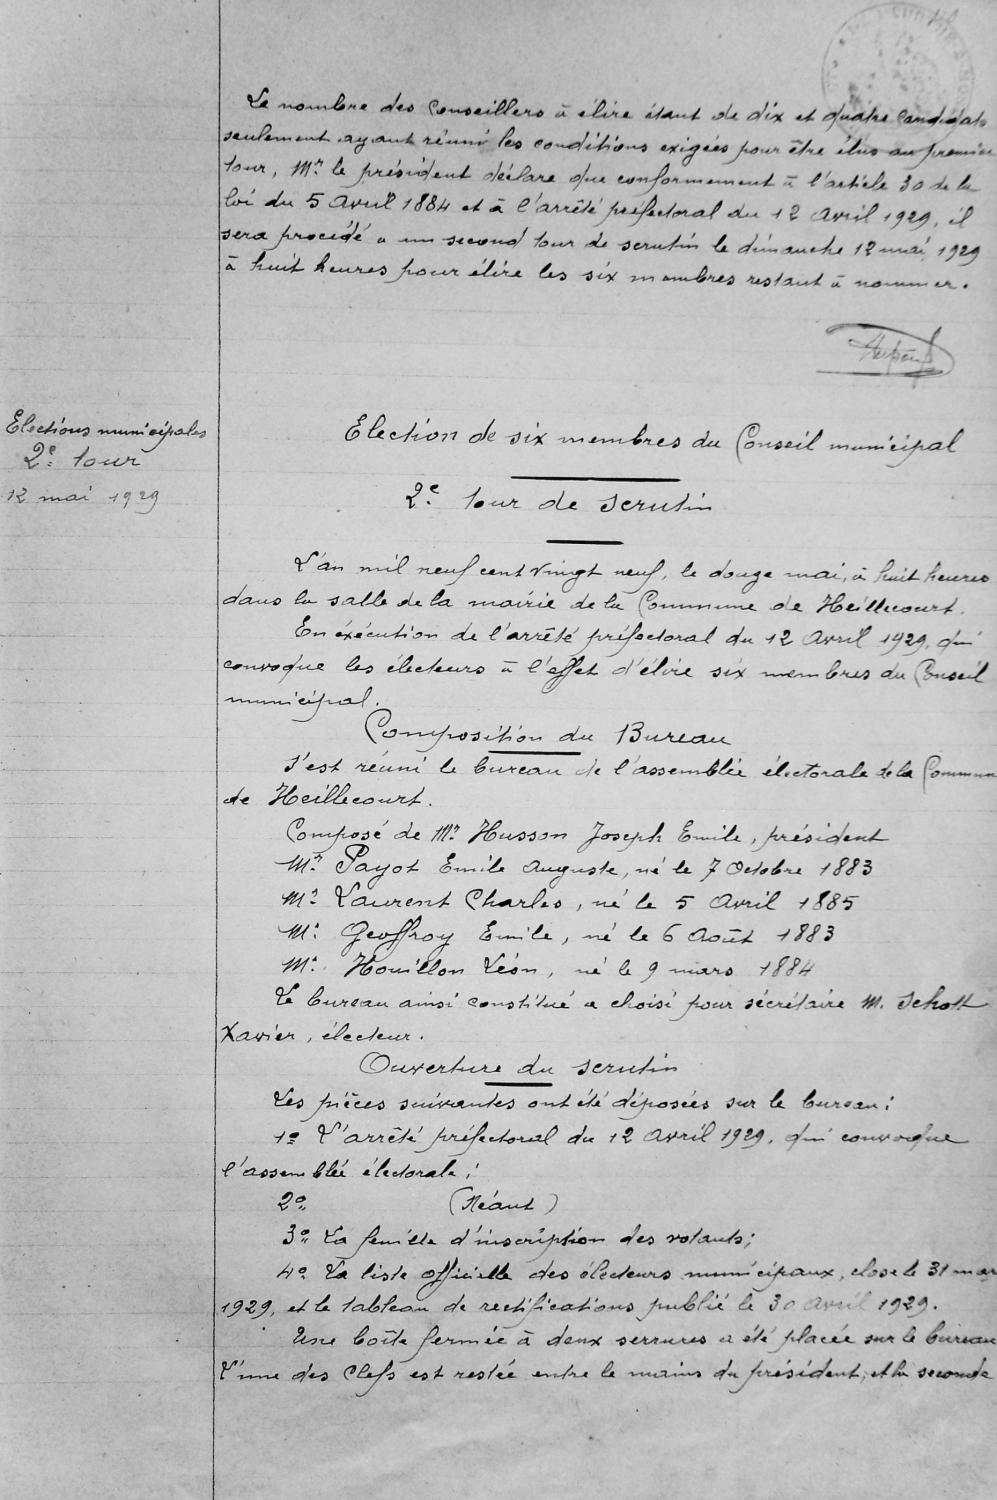 Le nombre des Conseillers à élire étant de dix et quatre candidats
seulement ayant réuni les conditions exigées pour être élus au premier
tour, Mr. le président déclare que conformement à l'article 30 de la
loi du 5 Avril 1884 et à l'arrêté préfectoral du 12 Avril 1929, il
sera procédé a un second tour de scrutin le dimanche 12 mai 1929
à huit heures pour élire les six membres restant à nommer.
Elections municipales
2e tour
12 mai 1929
Election de six membres du Conseil municipal
2e tour de scrutin
L'an mil neuf cent vingt neuf, le douze mai, à huit heures
dans la salle de la mairie de la Commune de Heillecourt.
En éxécution de l'arrêté préfectoral du 12 Avril 1929, qui
convoque les électeurs à l'effet d'élire six membres du Conseil
municipal.
Composition du Bureau
S'est réuni le bureau de l'assemblée électorale de la Commune
de Heillecourt.
Composé de Mr. Husson Joseph Emile, président
Mr. Payot Emile Auguste, né le 7 Octobre 1883
Mr. Laurent Charles, né le 5 Avril 1885
Mr. Geoffroy Emile, né le 6 Août 1883
Mr. Houillon Léon, né le 9 mars 1884
Le bureau ainsi constitué a choisi pour sécrétaire M. Schott
Xavier, électeur.
Ouverture du scrutin
Les pièces suivantes ont été déposées sur le bureau:
1o L'arrêté préfectoral du 12 Avril 1929, qui convoque
l'assemblée électorale;
2o (Néant)
3o La feuille d'inscription des votants;
4o La liste officielle des électeurs municipaux, close le 31 mar
1929, et le tableau de rectifications publié le 30 Avril 1929.
Une boîte fermée à deux serrures a été placée sur le bureau
L'une des clefs est restée entre le mains du président, et la seconde